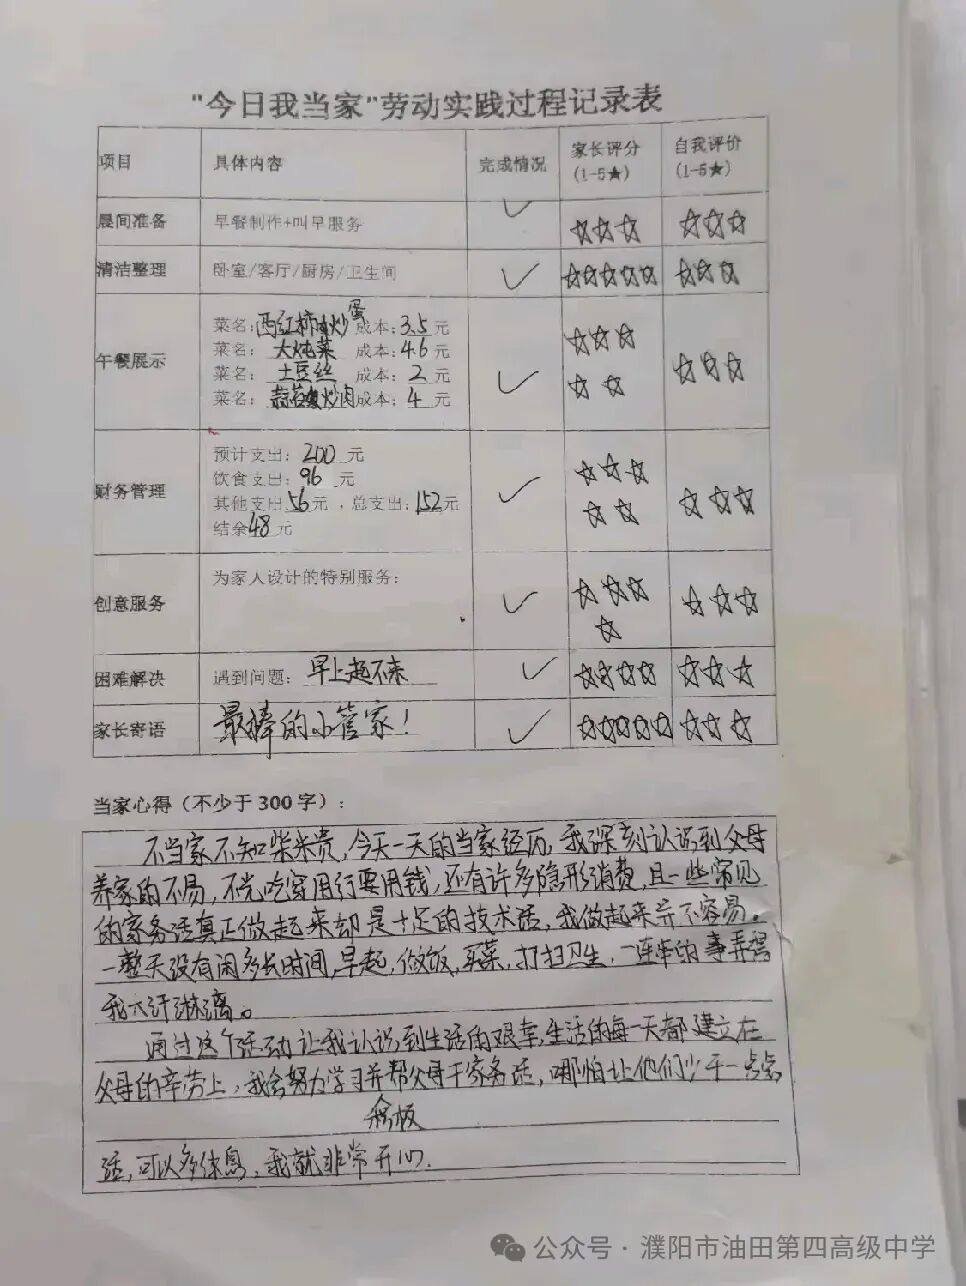 "今日我当家"劳动实践过程记录表
项目 具体内容 完成情况 家长评分 (1-5★) 自我评价 (1-5★)
晨间准备 早餐制作+叫早服务 ✓ ☆☆☆ ☆☆☆
清洁整理 卧室/客厅/厨房/卫生间 ✓ ☆☆☆☆☆ ☆☆☆
午餐展示 ✓ ☆☆☆☆☆ ☆☆☆
菜名：西红柿炒蛋 成本：3.5元
菜名：大炖菜 成本：4.6元
菜名：土豆丝 成本：2元
菜名：蒜苔炒肉 成本：4元
财务管理 ✓ ☆☆☆☆☆ ☆☆☆
预计支出：200元
饮食支出：96元
其他支出56元，总支出：152元
结余48元
创意服务 为家人设计的特别服务： ✓ ☆☆☆☆ ☆☆☆
困难解决 遇到问题：早上起不来 ✓ ☆☆☆☆ ☆☆☆
家长寄语 最棒的小管家！ ✓ ☆☆☆☆☆ ☆☆☆
当家心得（不少于300字）：
不当家不知柴米贵，今天一天的当家经历，我深刻认识到父母
养家的不易，不光吃穿用行要用钱，还有许多隐形消费，且一些常见
的家务活真正做起来却是十足的技术活，我做起来并不容易。
一整天没有闲多长时间，早起，做饭，买菜，打扫卫生，一连串的事弄得
我大汗淋漓。
通过这个活动让我认识到生活的艰辛，生活的每一天都建立在
父母的辛劳上，我会努力学习并帮父母干家务活，哪怕让他们少干一点点
活，可以多休息，我就非常开心.
公众号·濮阳市油田第四高级中学